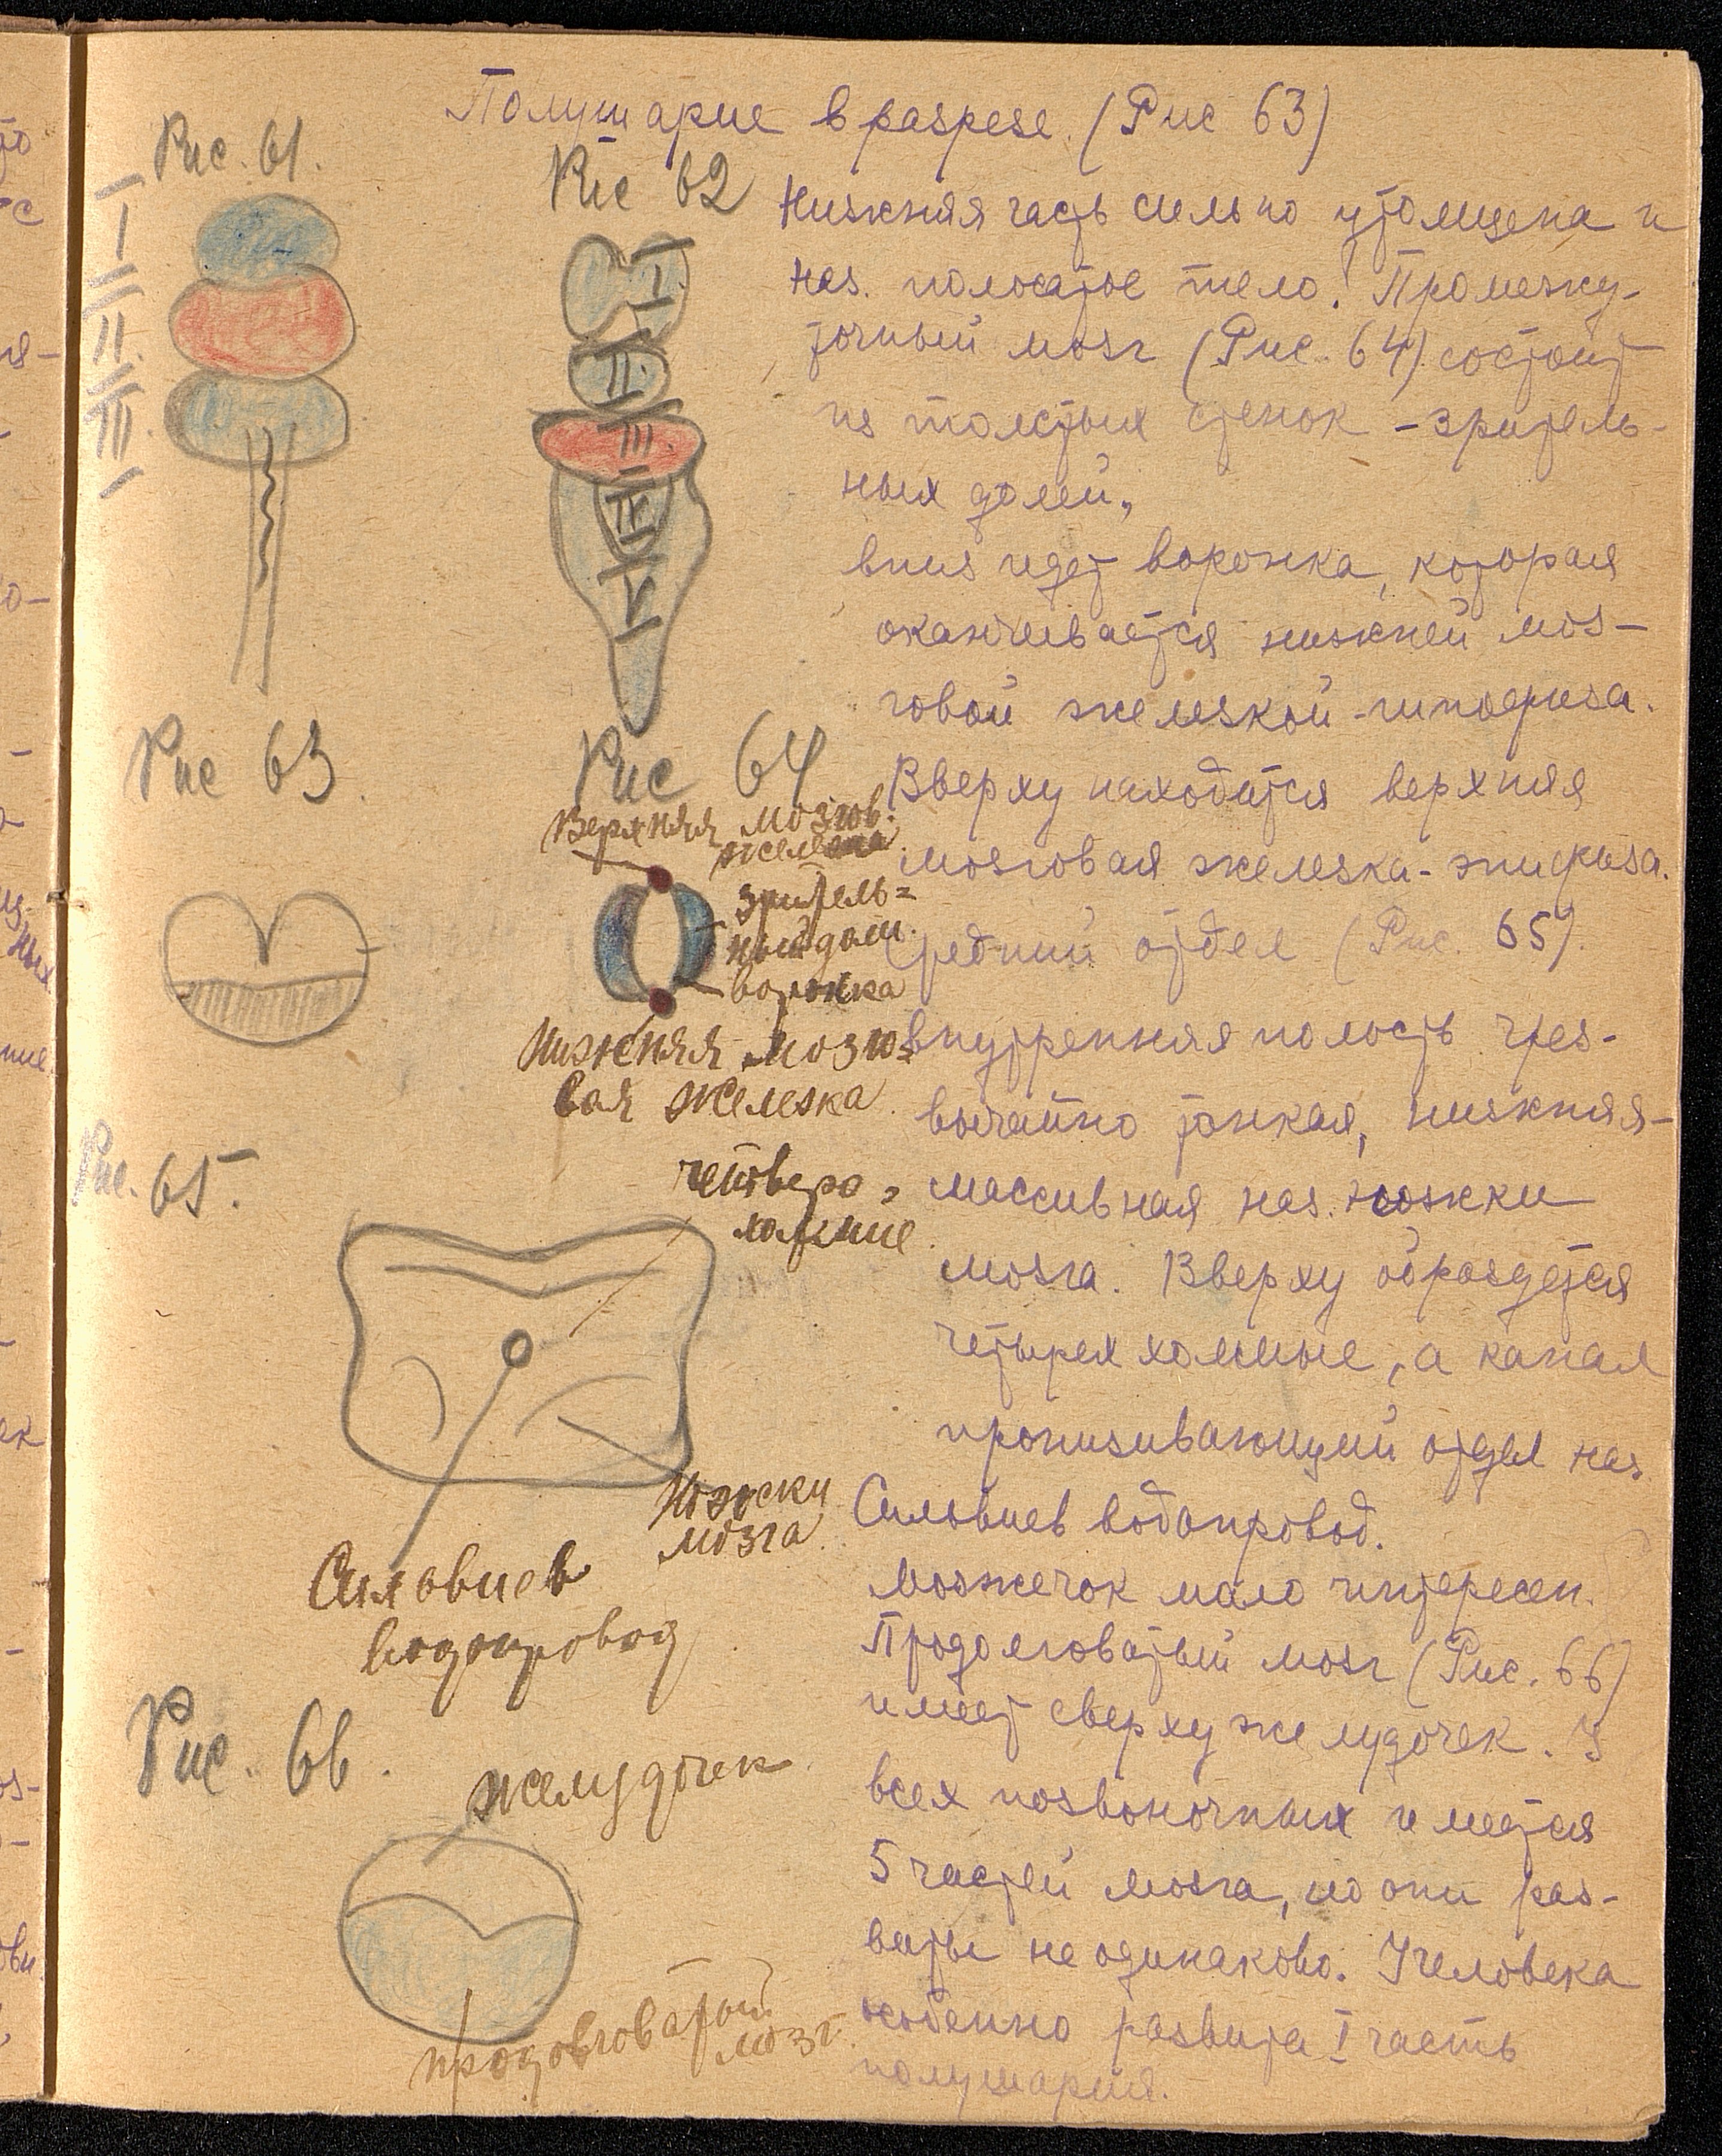 Полушарие в разрезе. (Рис 63)
Рис. 61.
I
II
III
Рис 62
I
II
III
IV
V
Нижняя часть сильно утолщена и
наз. полосатое тело! Промежу-
точный мозг (Рис. 64) состоит
из толстых стенок - зритель-
ных долей,
вниз идет воронка, которая
оканчивается нижней моз-
говой железкой - гипофиза.
Вверху находится верхняя
мозговая железка - эпифиза.
Средний отдел (Рис. 65).
внутренняя полость чрез-
вычайно тонкая, нижняя -
массивная наз. ножки
мозга. Вверху образуется
четыреххолмие, а канал
пронизывающий отдел наз.
Сильвиев водопровод.
Мозжечок мало интересен.
Продолговатый мозг (Рис. 66)
имеет сверху желудочек. У
всех позвоночных имеется
5 частей мозга, но они раз-
виты не одинаково. У человека
особенно развита I часть
полушария.
Рис 63.
Рис 64
Верхняя мозгов.
железка
зритель=
ный дол.
воронка
Нижняя мозго=
вая железка.
Рис. 65.
четверо=
холмие.
Ножки
мозга.
Сильвиев
водопровод.
Рис. 66.
желудочек.
продолговатый
мозг.